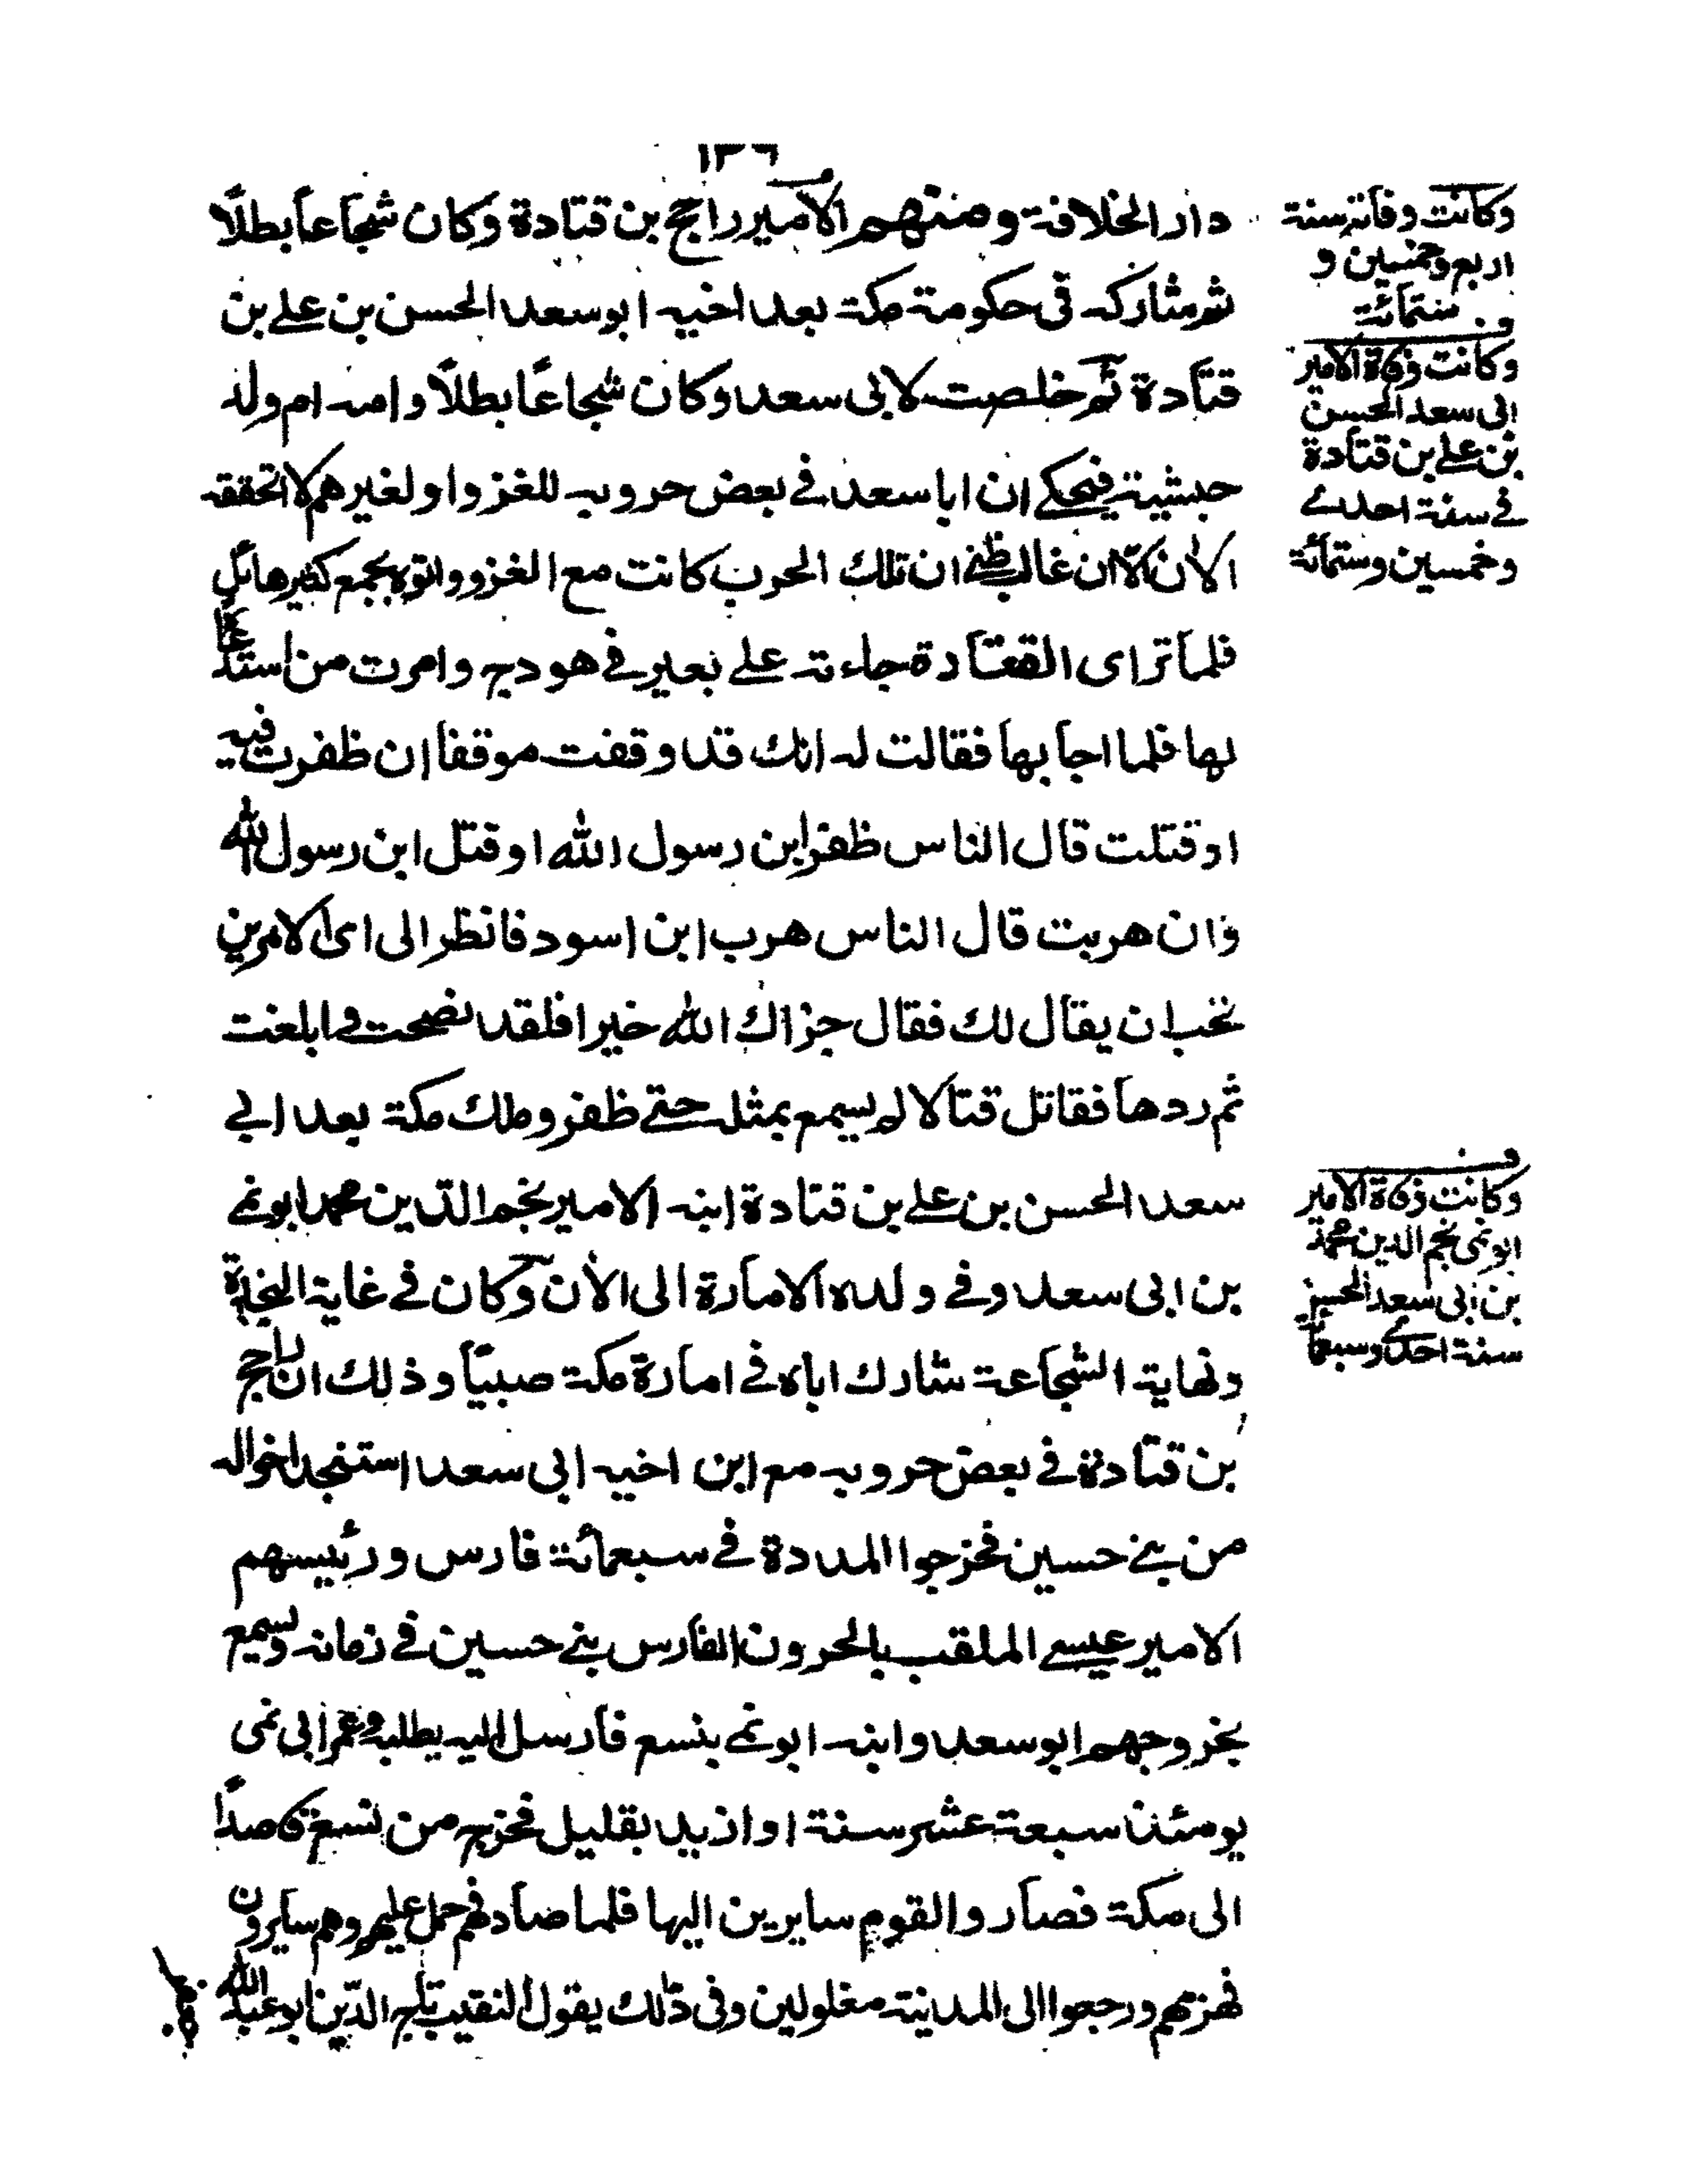 ١٣٦
دار الخلافة ومنهم الامير راجح بن قتادة وكان شجاعاً بطلاً
ثم شاركه فى حكومة مكة بعد اخيه ابو سعد الحسن بن على بن
قتادة ثم خلصت لابى سعد وكان شجاعاً بطلاً وامه ام ولد
حبشية فيحكى ان ابا سعد فى بعض حروبه للغز و او لغيرهم لا اتحققه
الان الا ان غالب ظنى ان تلك الحرب كانت مع الغز و واتوه بجمع كثير هائل
فلما تراى القتادة جاءته على بعير فى هودج وامرت من استدعا
بها فلما اجابها فقالت له انك قد وقفت موقفا ان ظفرت فيه
او قتلت قال الناس ظفر ابن رسول الله او قتل ابن رسول الله
وان هربت قال الناس هرب ابن اسود فانظر الى اى الامرين
تحب ان يقال لك فقال جزاك الله خيرا فلقد نصحت وابلغت
ثم ردها فقاتل قتالا لم يسمع بمثله حتى ظفر وملك مكة بعد ابى
سعد الحسن بن على بن قتادة ابنه الامير نجم الدين محمد ابو نمى
بن ابى سعد وفى ولده الامارة الى الان وكان فى غاية النجدة
ونهاية الشجاعة شارك اباه فى امارة مكة صبياً وذلك ان راجح
بن قتادة فى بعض حروبه مع ابن اخيه ابى سعد استنجد اخواله
من بنى حسين فخرجوا المددة فى سبعمائة فارس ورئيسهم
الامير عيسى الملقب بالحرون الفارس بنى حسين فى زمانه وسمع
بخروجهم ابو سعد وابنه ابو نمى بنسع فارسل اليه يطلبه وعمر ابى نمى
يومئذ سبعة عشر سنة او ازيد بقليل فخرج من نسع قاصداً
الى مكة فصار والقوم سايرين اليها فلما صادفهم حمل عليهم وهم سايرون
فهزمهم ورجعوا الى المدينة مغلولين وفى ذلك يقول النقيب تاج الدين ابو عبد الله
وكانت وفاته سنة
اربع وخمسين و
ستمائة
وكانت وفاة الامير
ابى سعد الحسن
بن على بن قتادة
فى سنة احدى
وخمسين وستمائة
وكانت وفاة الامير
ابو نمى نجم الدين محمد
بن ابى سعد الحسن
سنة احدى وسبعمائة